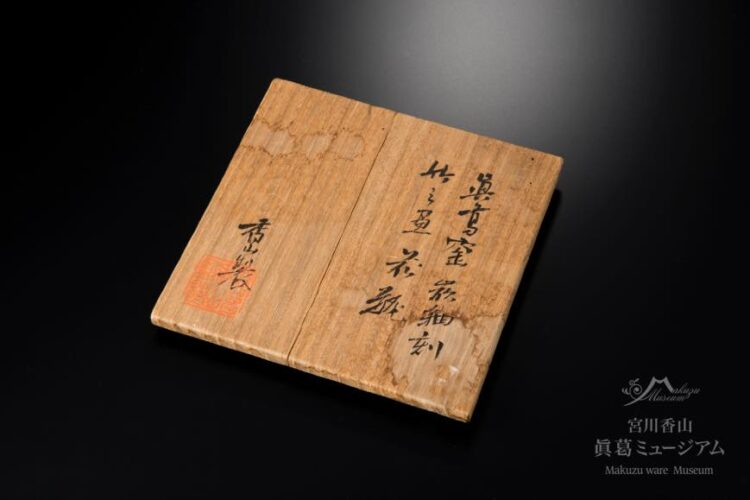 眞葛窯 釉刻
竹之画 花瓶
香山製
Makuzu
Museum
宮川香山
眞葛ミュージアム
Makuzu ware Museum